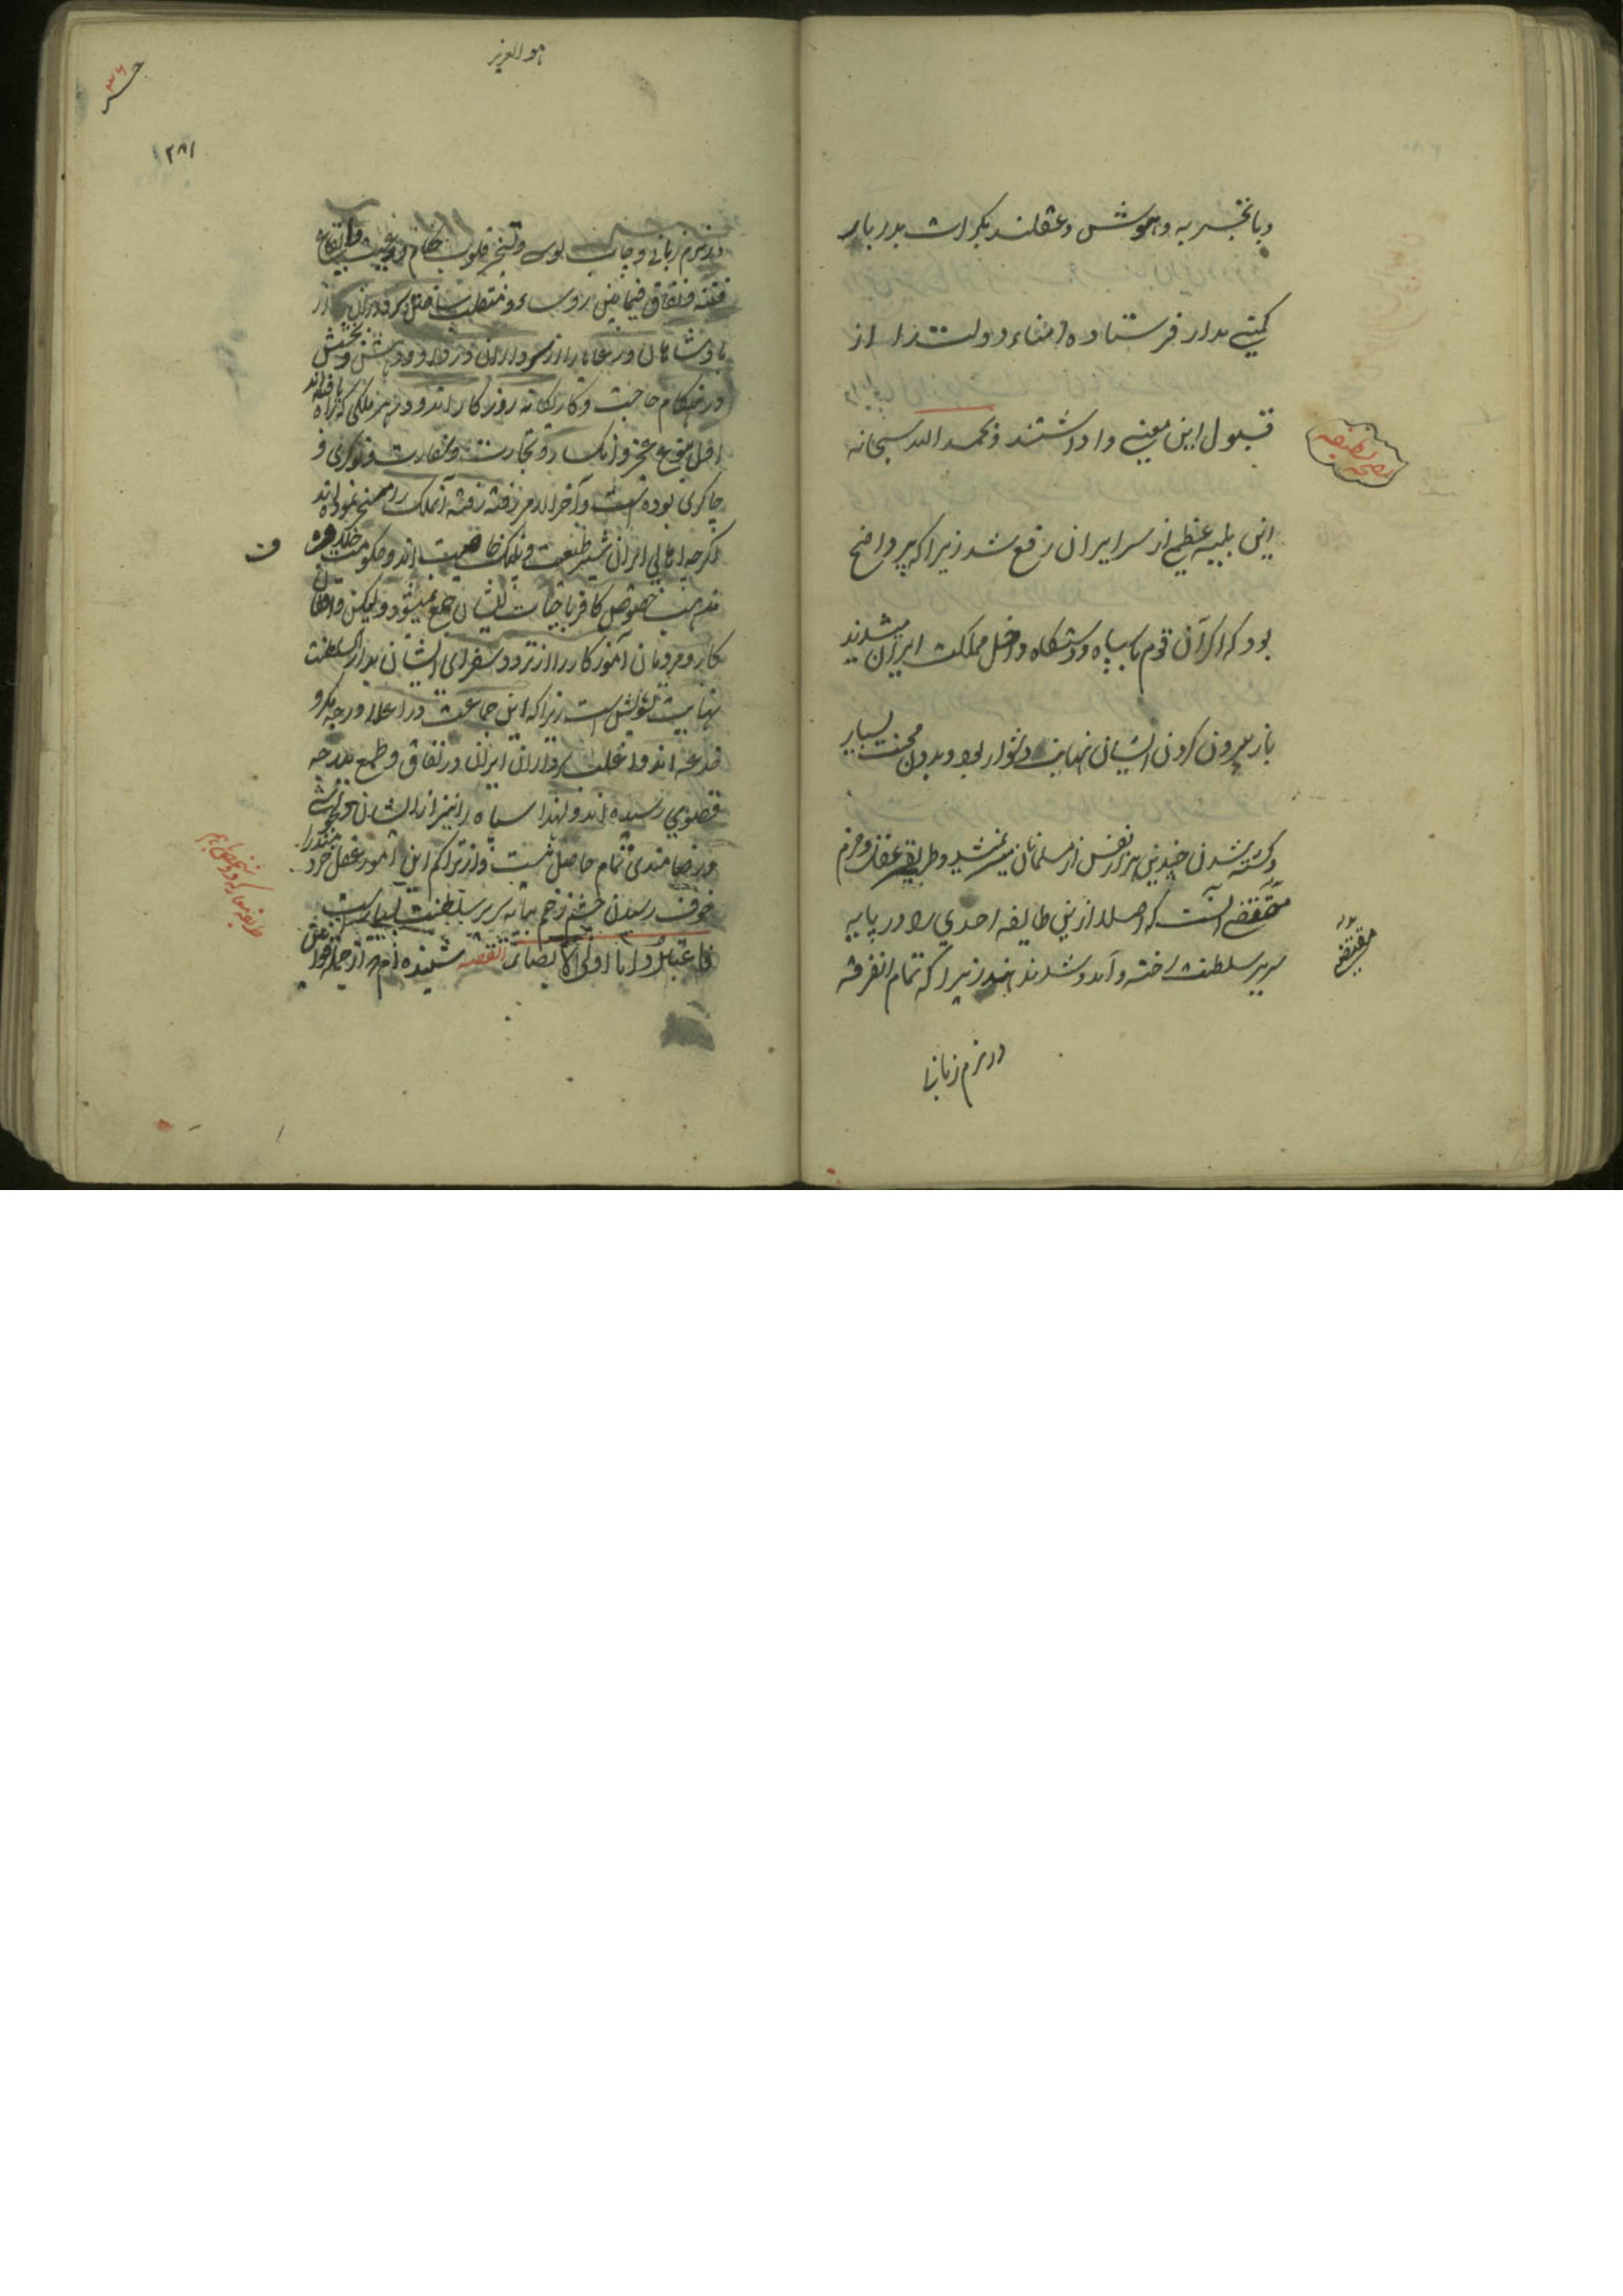 و با تجربه و هوش و عقلند بکرات بدربار
کیتی مدار فرستاده امناء دولت را از
قبول این معنی وا داشتند و بحمد الله سبحانه
این بلیه عظمی از سر ایران رفع شد زیرا که پر واضح
بود که اگر آن قوم با سپاه و دستگاه داخل مملکت ایران میشدند
باز بیرون کردن ایشان نهایت دشوار بود و بدون محنت بسیار
و کشته شدن چندین هزار نفس از مسلمانان میسر نمیشد و طریق عقل و حزم
مقتضی آنست که اصلا ازین طایفه احدی را در پایه
سریر سلطنت رخنه و آمد و شد ندهند زیرا که تمام انفرقه
مقتضی
در نرم زبانی
هو العزیز
۲۸۱
در نرم زبانی و چاپلوسی و تسخیر قلوب حکام و رعیت و ایقاع
فتنه و نفاق فیمابین روساء و
پادشاهان و رعایا را از سرداران و داد و دهش و بخشش
در هنگام حاجت و کار یگانه روزگار اند و در هر ملکی که راه یافته اند
اول بنوع عجز و انکسار و تجارت و سفارت و نوکری و
چاکری بوده است و آخر الامر رفته رفته آنملک را مسخر نموده اند
اگر چه اهالی ایران شیر طبیعت و پلنگ خاصیت اند و حکومت خارج
مذهب خصوص کافر با حیات ایشان جمع نمیشود و لیکن واقفان
کار و مردمان آموزکار را از تردد سفرای ایشان بدار السلطنت
نهایت تشویش است زیرا که این جماعت در اعلا درجه مکر و
خدعه اند و اغلب سرداران ایران در نفاق و طمع بدرجه
قصوی رسیده اند و لهذا سپاه را نیز از ایشان
و رضامندی تمام حاصل نیست و از تراکم این امور عقل خرد
خوف رسیدن چشم زخم بپایه سریر سلطنت بسیار است
فاعتبروا یا اولی الابصار القصه شنیده ام که از جمله